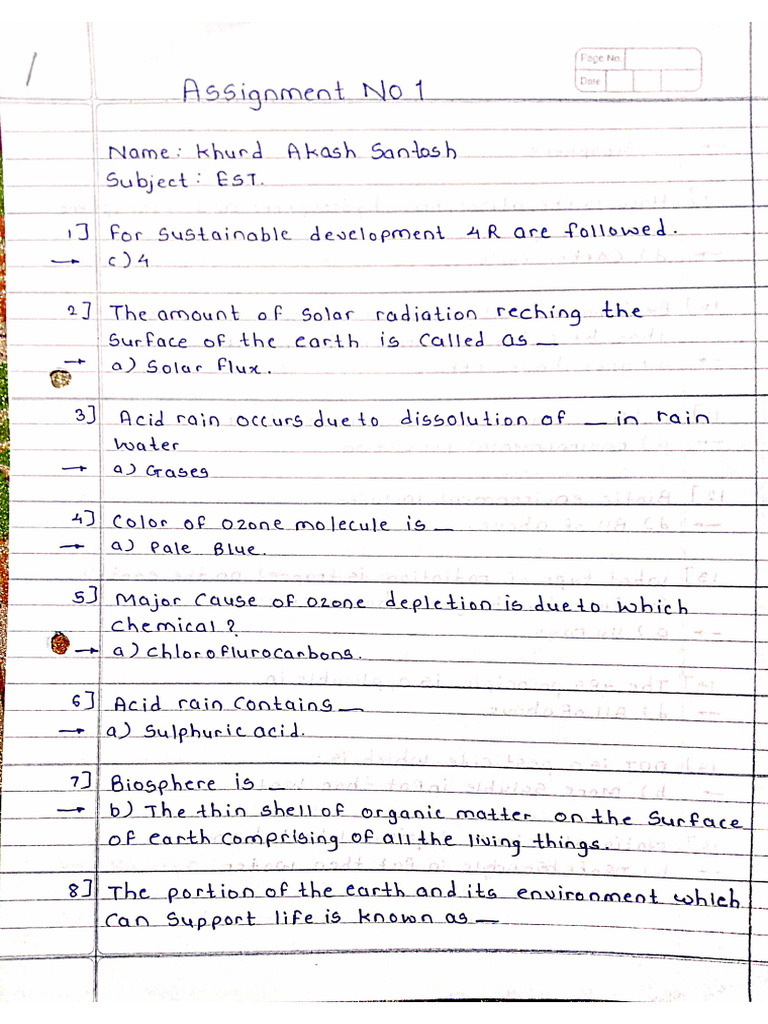 /
Page No.
Date
Assignment No 1
Name: Khurd Akash Santosh
Subject: EST.
1] For sustainable development 4R are followed.
→ c) 4
2] The amount of solar radiation reching the
surface of the earth is called as _
→ a) Solar flux.
3] Acid rain occurs due to dissolution of _ in rain
water
→ a) Gases
4] Color of ozone molecule is _
→ a) Pale Blue.
5] Major cause of ozone depletion is due to which
chemical?
→ a) Chloroflurocarbons.
6] Acid rain contains _
→ a) Sulphuric acid.
7] Biosphere is _
→ b) The thin shell of organic matter on the surface
of earth comprising of all the living things.
8] The portion of the earth and its environment which
can support life is known as _